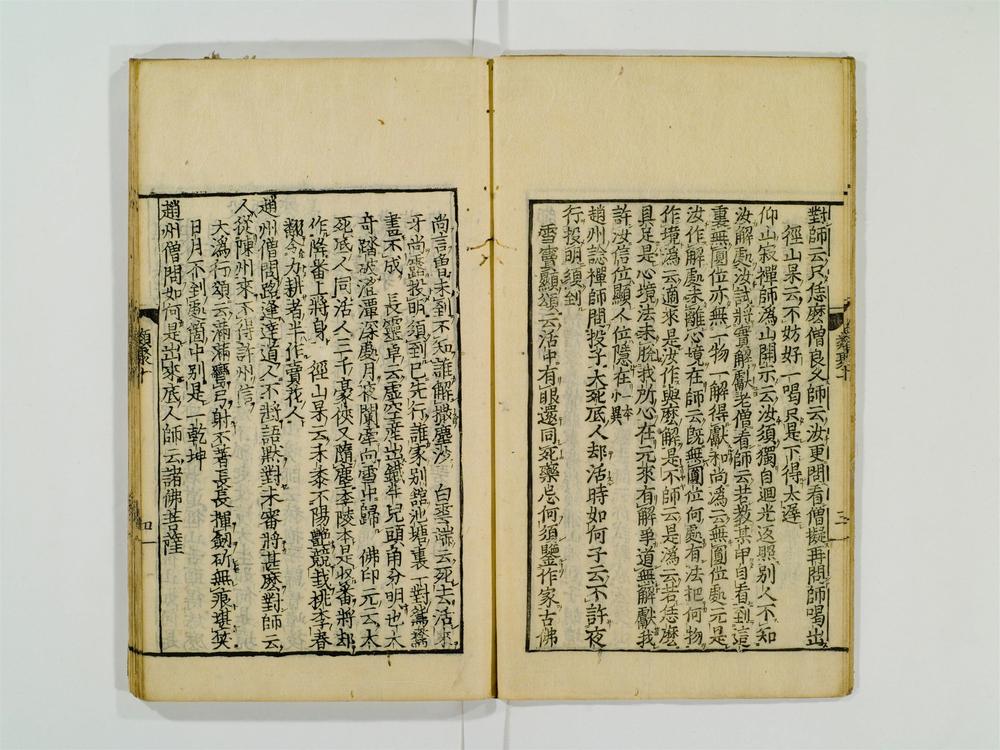 對師云只恁麼僧良久師云汝更問看僧擬再問師喝出
徑山杲云不妨好一喝只是下得太遲
仰山寂禪師溈山開示云汝須獨自迴光返照別人不知
汝解處汝試將實解獻老僧看師云若教某甲自看到這
裏無圓位亦無一物一解得獻和尚溈云無圓位處元是
汝作解處未離心境在師云既無圓位何處有法把何物
作境溈云適來是汝作與麼解是不師云是溈云若恁麼
具足是心境法未脫我所心在元來有解爭道無解獻我
許汝信位顯人位隱在一本小異
趙州諗禪師問投子大死底人却活時如何子云不許夜
行投明須到
雪竇顯頌云活中有眼還同死藥忌何須鑒作家古佛
三
尚言曾未到不知誰解撒塵沙 白雲端云死去活來
牙尚露投明須到已先行誰家別舘池塘裏一對鴛鴦
畫不成 長靈卓云虛空產出鐵牛兒頭角分明也太
奇踏破澄潭深處月夜闌牽向雪中歸 佛印元云大
死底人同活人三千豪俠又隨塵李陵本是收番將却
作降番上將身 徑山杲云禾黍不陽艷競栽桃李春
飜令力耕者半作賣花人
趙州僧問路逢達道人不將語默對未審將甚麼對師云
人從陳州來不得許州信
大溈行頌云滿滿彎弓射不著長長揮劒斫無痕堪笑
日月不到處箇中別是一乾坤
趙州僧問如何是出來底人師云諸佛菩薩
類聚十
四